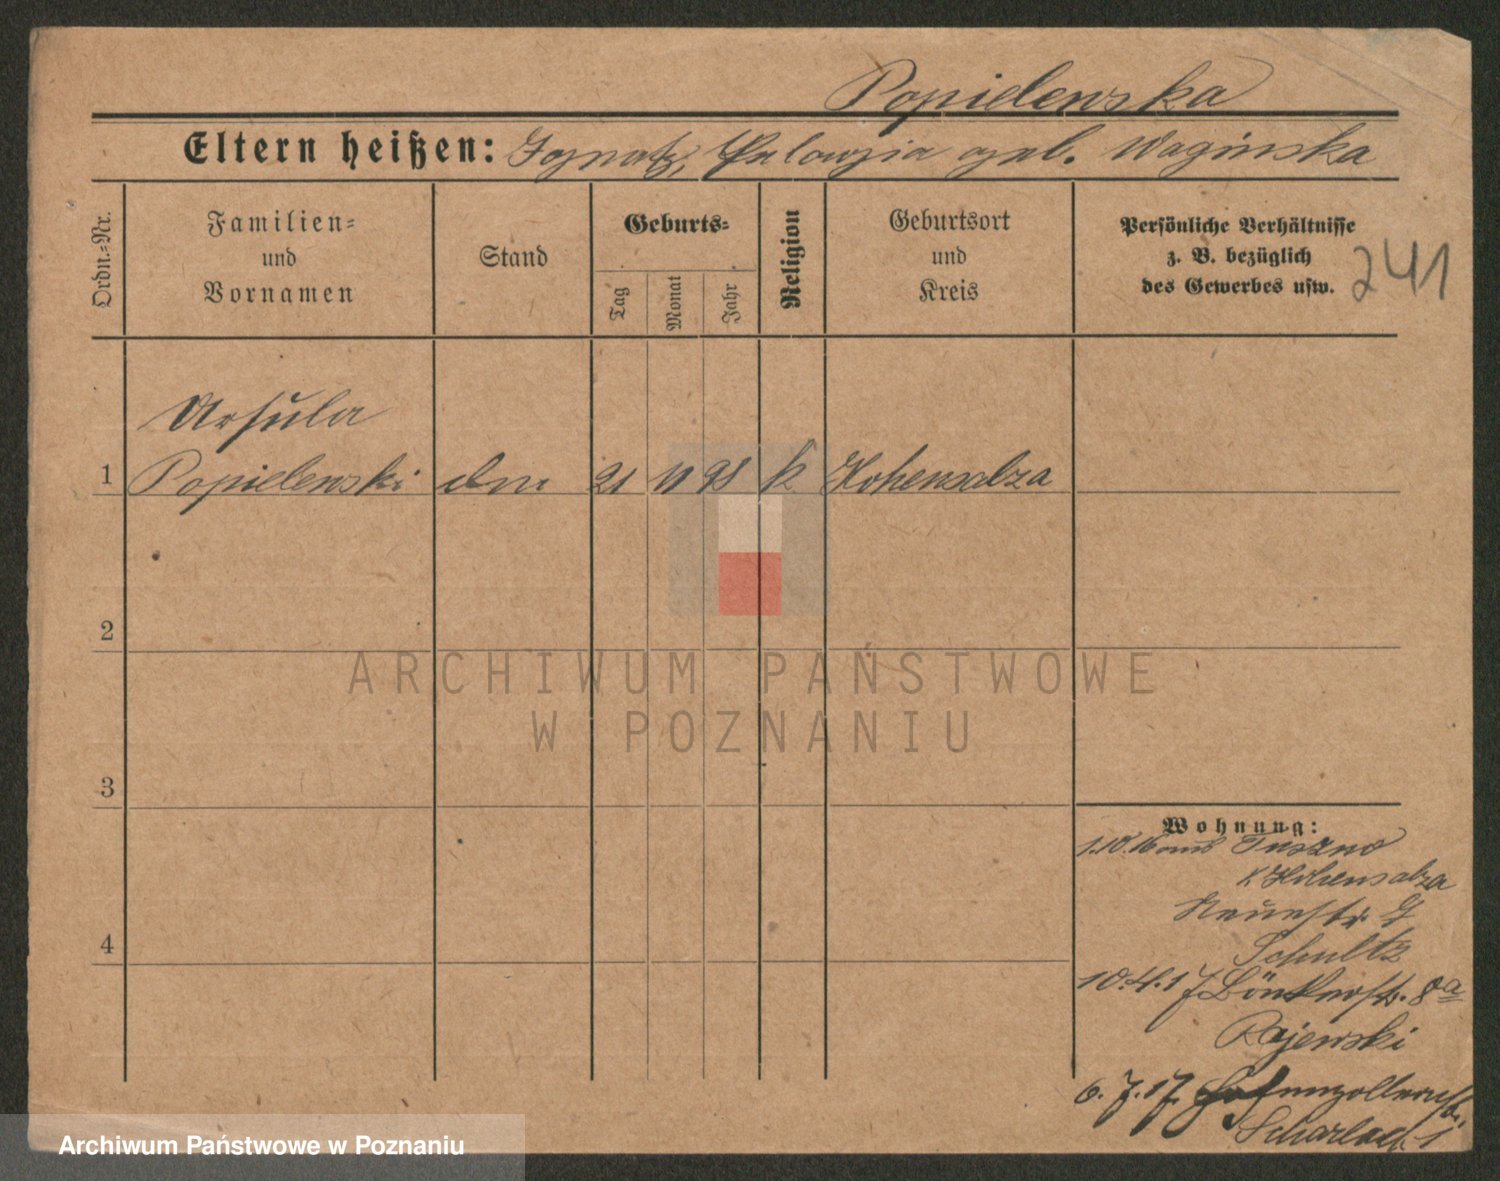 Popielewska
Eltern heißen: Ignatz, Pelagia geb. Waginska
Ordn.-Nr.
Familien-
und
Vornamen
Stand
Geburts-
Tag
Monat
Jahr
Religion
Geburtsort
und
Kreis
Persönliche Verhältnisse
z. B. bezüglich
des Gewerbes usw.
241
Ursula
1 Popielewski 21 11 98 k Hohensalza
2
3
4
ARCHIWUM PAŃSTWOWE
W POZNANIU
Wohnung:
1.10.16 aus Tuszno
K Hohensalza
Neuestr.
Schultz
10.4.17 Bäckerstr. 8a
Rajewski
6.7.17 Hohenzollernstr.
Scharlach
Archiwum Państwowe w Poznaniu